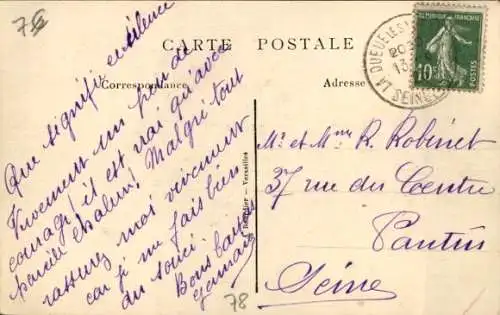 76
CARTE POSTALE
Correspondance
Adresse
Que signifie ce silence
Vivement un peu de
courage, il est vrai qu'avec
pareille chaleur! Malgré tout
rassurez moi vivement
car je me fais bien
du souci.
Bons baisers
Germaine
LA QUEUE LES
20
13
SEINE
RÉPUBLIQUE FRANÇAISE
10c
POSTES
Versailles
Mr et Mme R. Robinet
37 rue du Centre
Pantin
Seine
78